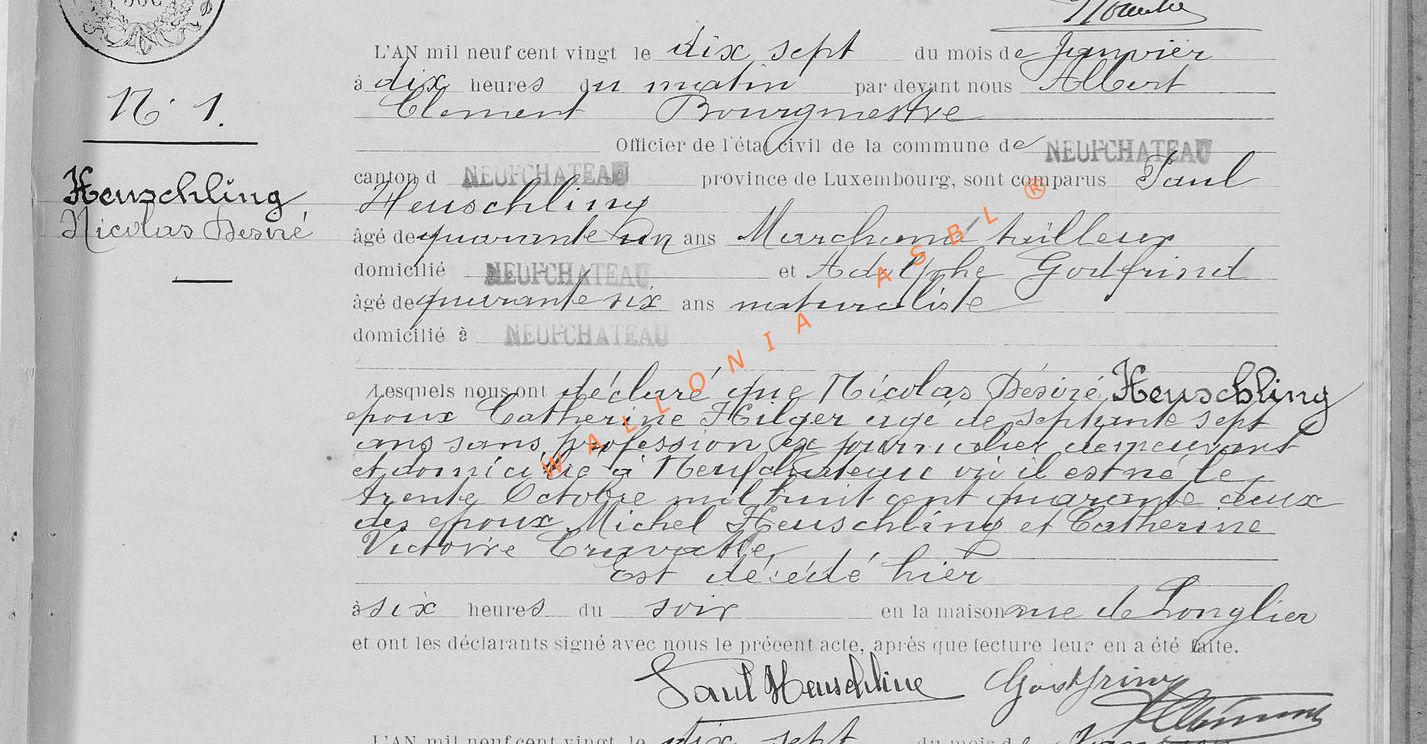 L'AN mil neuf cent vingt le dix sept du mois de Janvier
à dix heures du matin par devant nous Albert
Clement Bourgmestre
Officier de l'état civil de la commune de NEUFCHATEAU
canton d NEUFCHATEAU province de Luxembourg, sont comparus Paul
Heuschling
âgé de quarante un ans Marchand tailleur
domicilié NEUFCHATEAU et Adolphe Godfrind
âgé de quarante six ans naturaliste
domicilié à NEUFCHATEAU
Lesquels nous ont déclaré que Nicolas Désiré Heuschling
époux Catherine Hilger agé de septante sept
ans sans profession ex demeurant
et domicilié à Neufchateau où il est né le
trente Octobre mil huit cent quarante deux
des époux Michel Heuschling et Catherine
Victoire
Est décédé hier
à six heures du soir en la maison rue de Longlier
et ont les déclarants signé avec nous le précent acte, après que lecture leur en a été faite.
Paul Heuschling Godfrind AClément
L'AN mil neuf cent vingt le dix sept du mois de Janvier
N° 1.
Heuschling
Nicolas Desiré
WALLONIA ASBL ®